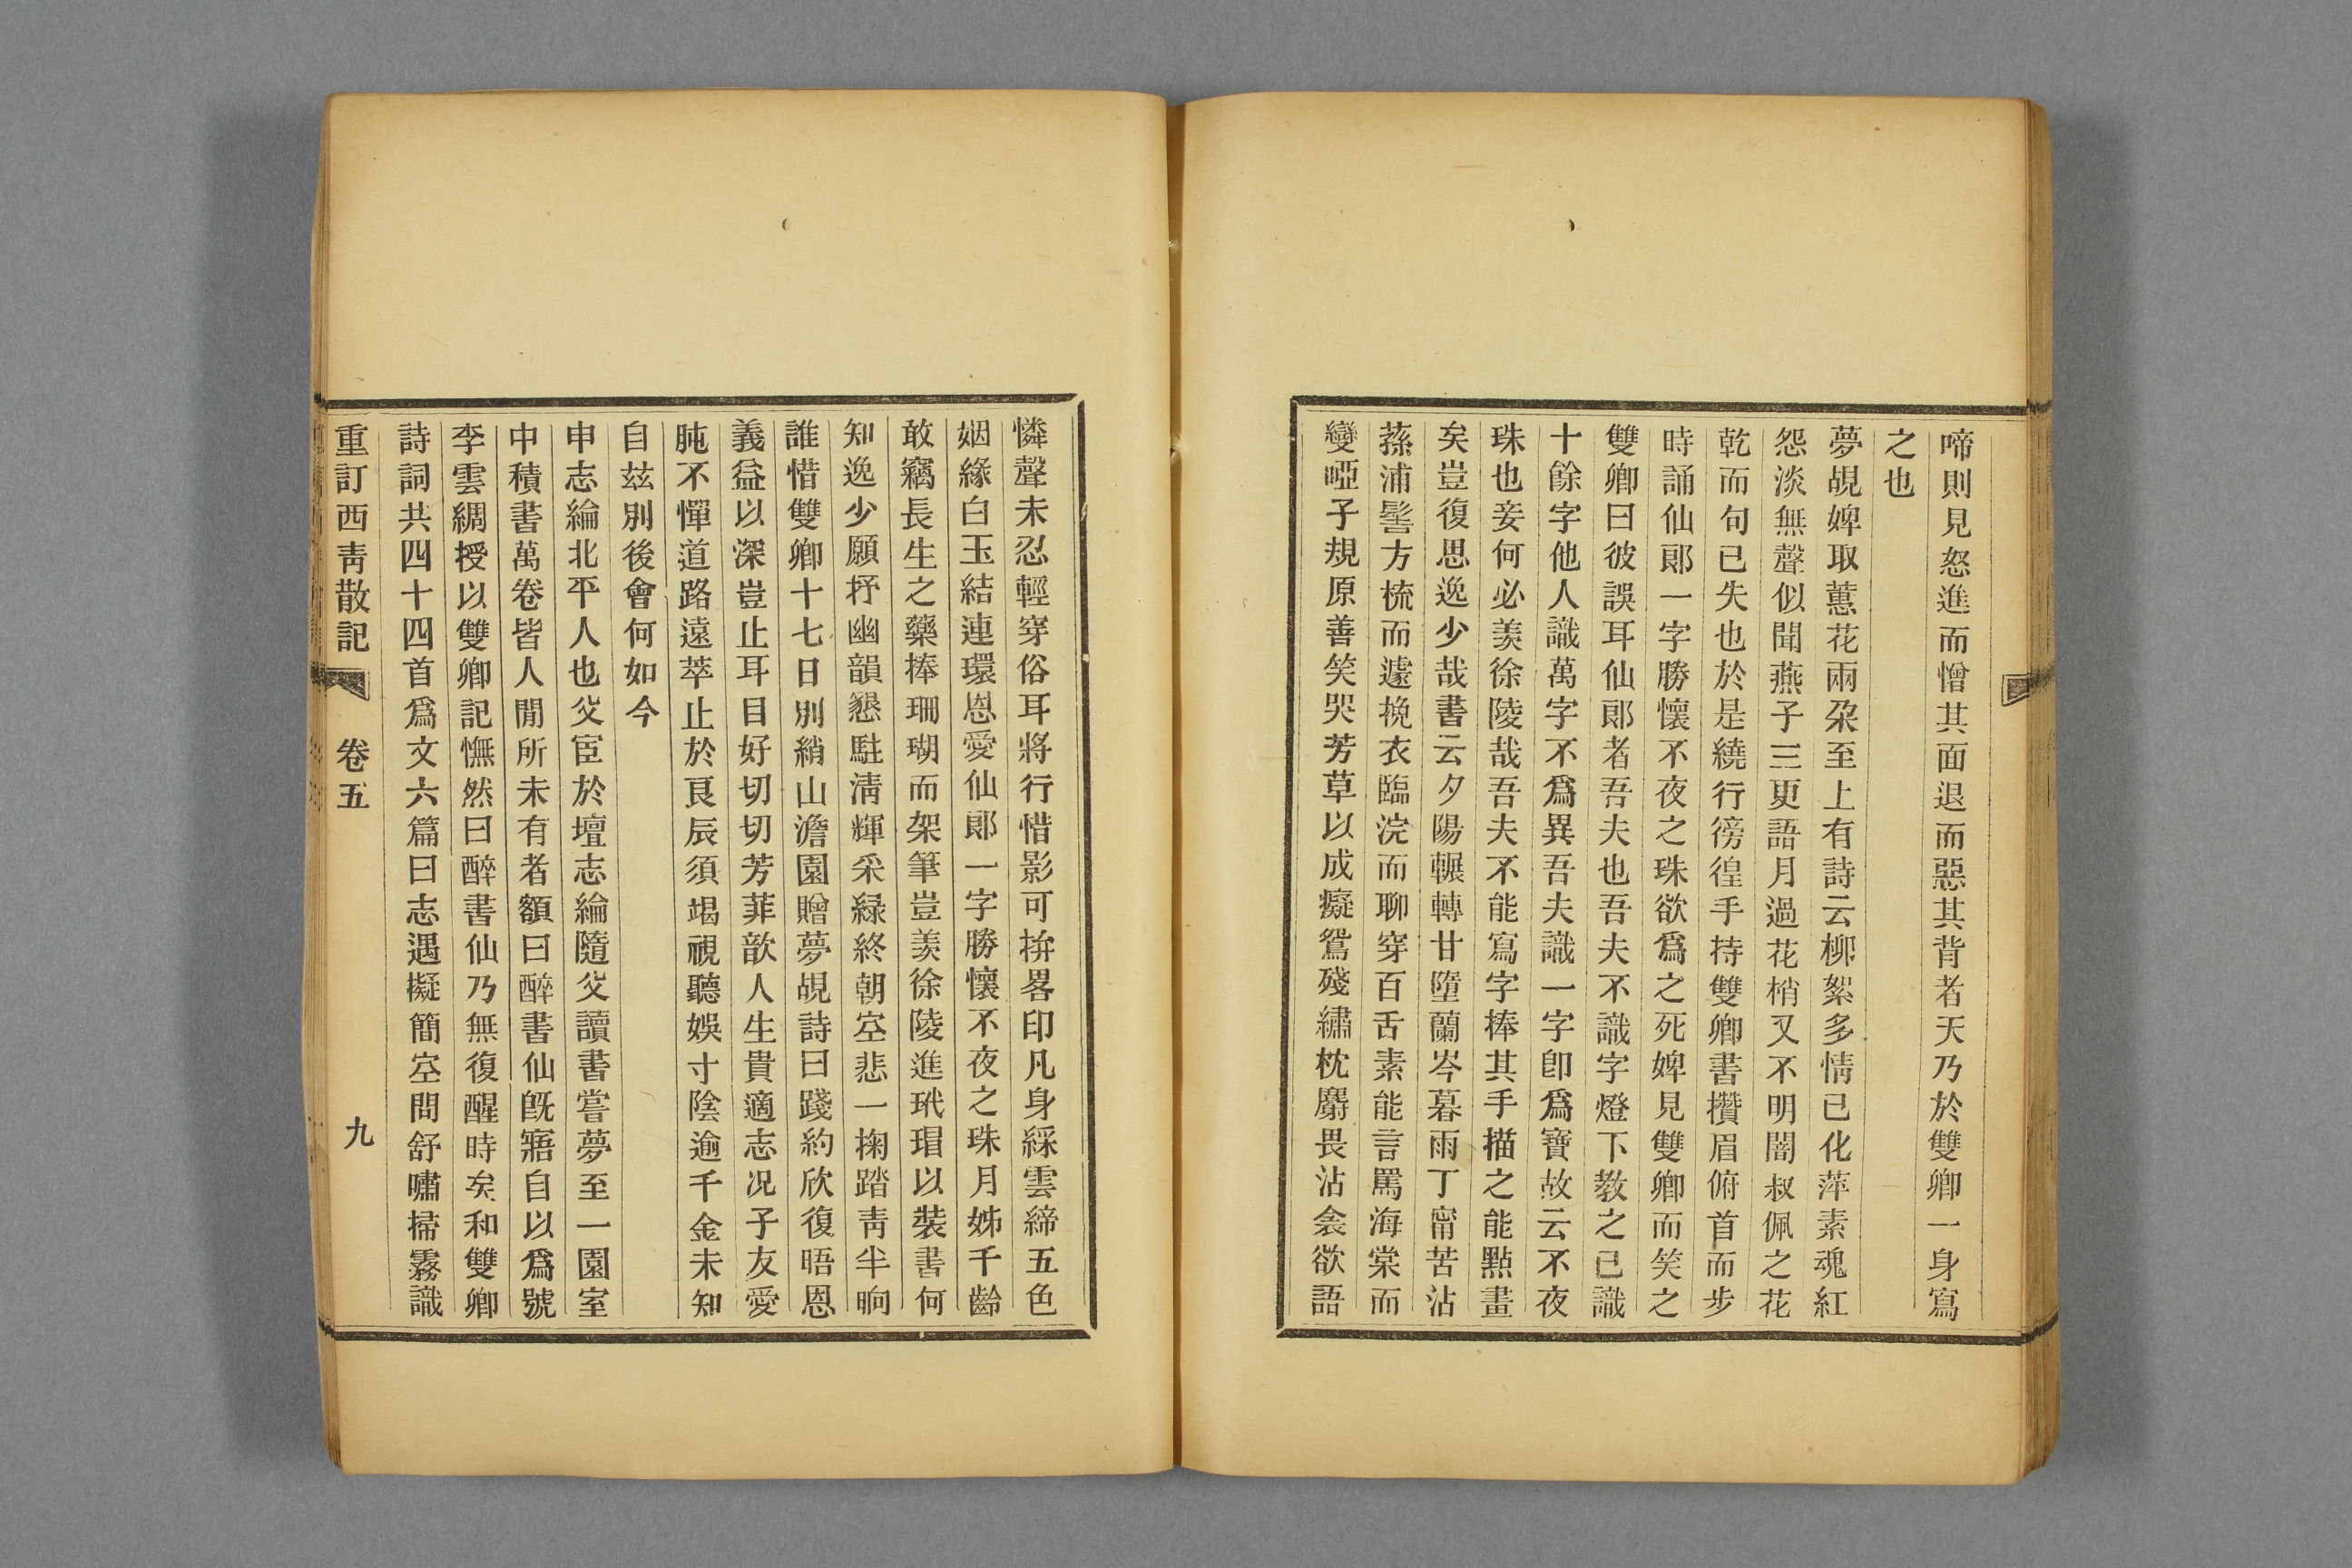 啼則見怒進而憎其面退而惡其背者天乃於雙卿一身寫
之也
夢覘婢取蕙花兩朶至上有詩云柳絮多情已化萍素魂紅
怨淡無聲似聞燕子三更語月過花梢又不明闇叔佩之花
乾而句已失也於是繞行徬徨手持雙卿書攢眉俯首而步
時誦仙郞一字勝懷不夜之珠欲爲之死婢見雙卿而笑之
雙卿曰彼誤耳仙郞者吾夫也吾夫不識字燈下敎之已識
十餘字他人識萬字不爲異吾夫識一字卽爲寶故云不夜
珠也妾何必羨徐陵哉吾夫不能寫字捧其手描之能點畫
矣豈復思逸少哉書云夕陽輾轉甘墮蘭岑暮雨丁甯苦沾
蓀浦髻方梳而遽挽衣臨浣而聊穿百舌素能言罵海棠而
變啞子規原善笑哭芳草以成癡鴛殘繡枕麝畏沾衾欲語
憐聲未忍輕穿俗耳將行惜影可拚畧印凡身綵雲締五色
姻緣白玉結連環恩愛仙郞一字勝懷不夜之珠月姊千齡
敢竊長生之藥捧珊瑚而架筆豈羨徐陵進玳瑁以裝書何
知逸少願抒幽韻懇駐淸輝采綠終朝空悲一掬踏靑半晌
誰惜雙卿十七日別綃山澹園贈夢覘詩曰踐約欣復晤恩
義益以深豈止耳目好切切芳菲歆人生貴適志况子友愛
肫不憚道路遠萃止於良辰須竭視聽娛寸陰逾千金未知
自玆別後會何如今
申志綸北平人也父宦於壇志綸隨父讀書嘗夢至一園室
中積書萬卷皆人閒所未有者額曰醉書仙旣寤自以爲號
李雲綢授以雙卿記憮然曰醉書仙乃無復醒時矣和雙卿
詩詞共四十四首爲文六篇曰志遇擬簡空問舒嘯掃霧識
重訂西靑散記 卷五 九